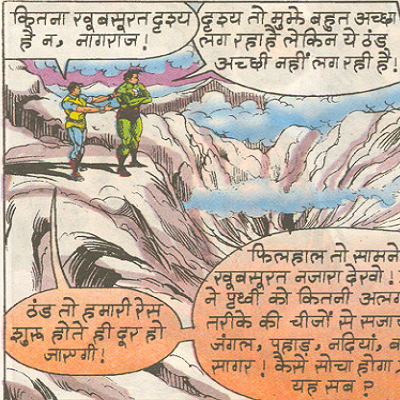 कितना खूबसूरत दृश्य
है न, नागराज!
दृश्य तो मुझे बहुत अच्छा
लग रहा है लेकिन ये ठंड
अच्छी नहीं लग रही है!
ठंड तो हमारी रेस
शुरू होते ही दूर हो
जाएगी!
फिलहाल तो सामने
खूबसूरत नजारा देखो!
ने पृथ्वी को कितनी अलग
तरीके की चीजों से सजा
जंगल, पहाड़, नदियां,
सागर! कैसे सोचा होगा
यह सब?